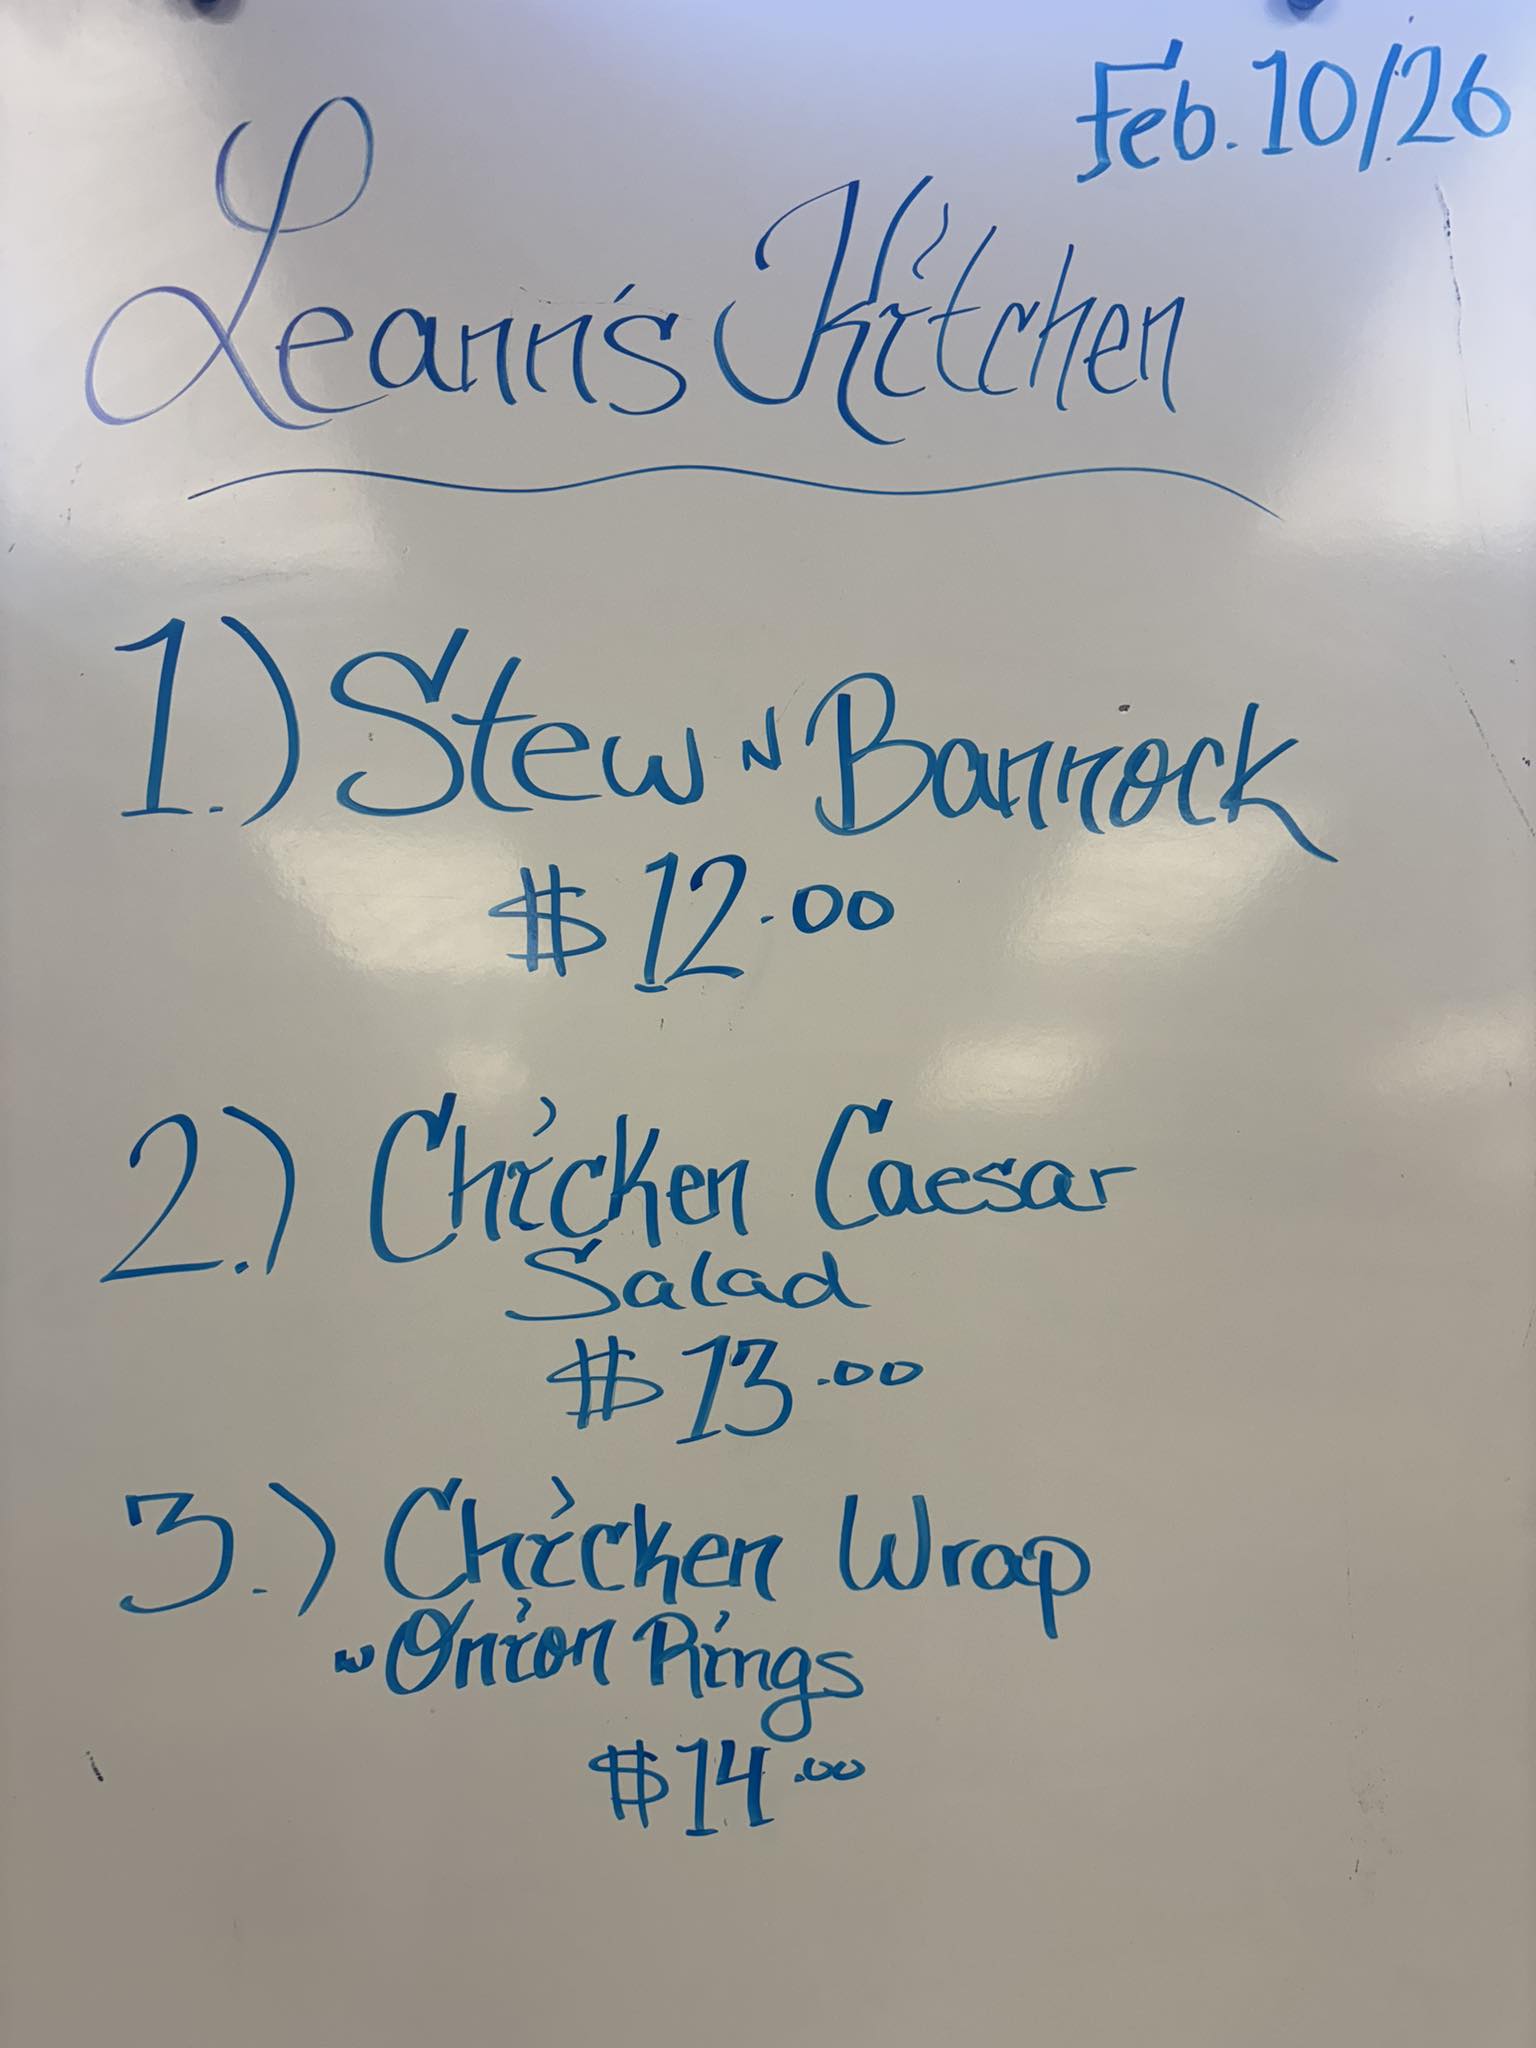 Feb. 10/26
Leann's Kitchen
1.) Stew N Bannock
$12.00
2.) Chicken Caesar
Salad
$13.00
3.) Chicken Wrap
w Onion Rings
$14.00